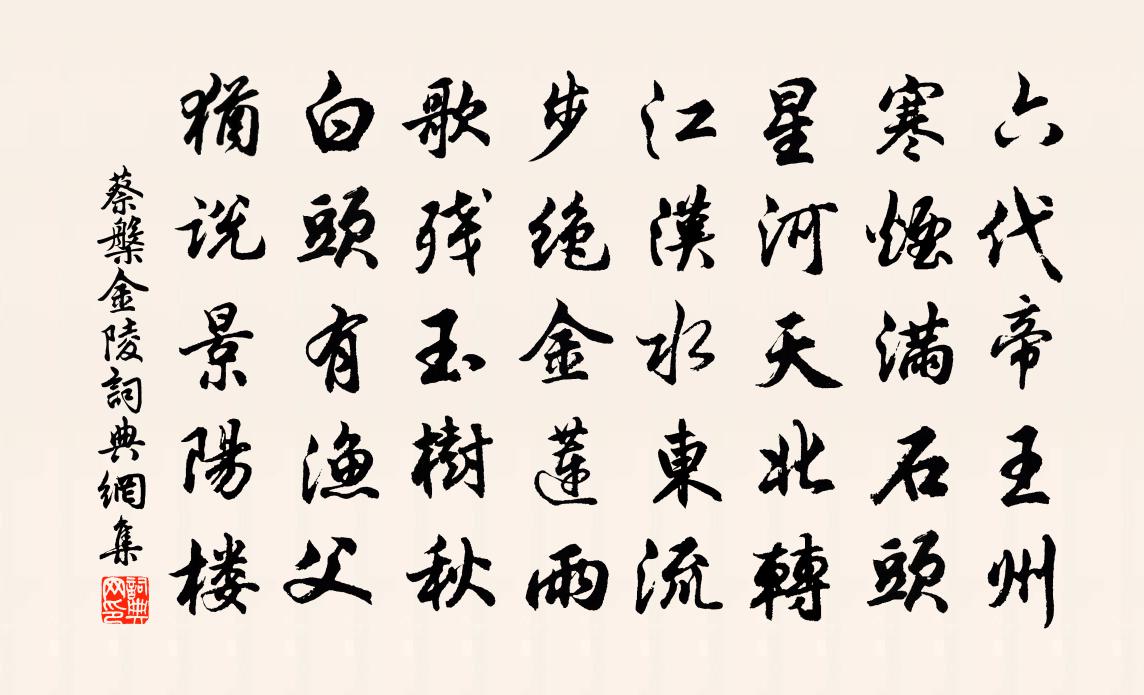 六代帝王州
寒煙滿石頭
星河天北轉
江漢水東流
步绝金蓮雨
歌残玉樹秋
白頭有漁父
猶说景陽楼
蔡槃金陵詞典網集
詞典网印